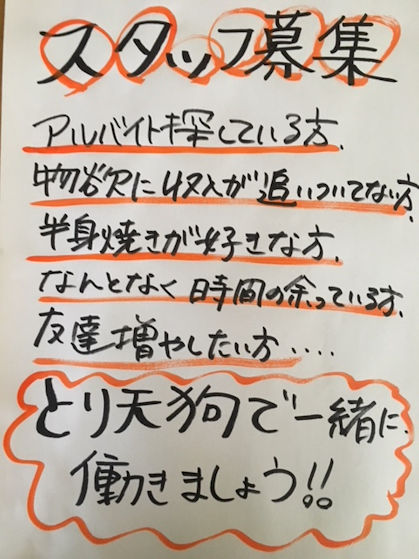 スタッフ募集
アルバイト探している方、
物欲に収入が追いついてない方、
半身焼きが好きな方、
なんとなく時間の余っている方、
友達増やしたい方‥‥
とり天狗で一緒に
働きましょう!!